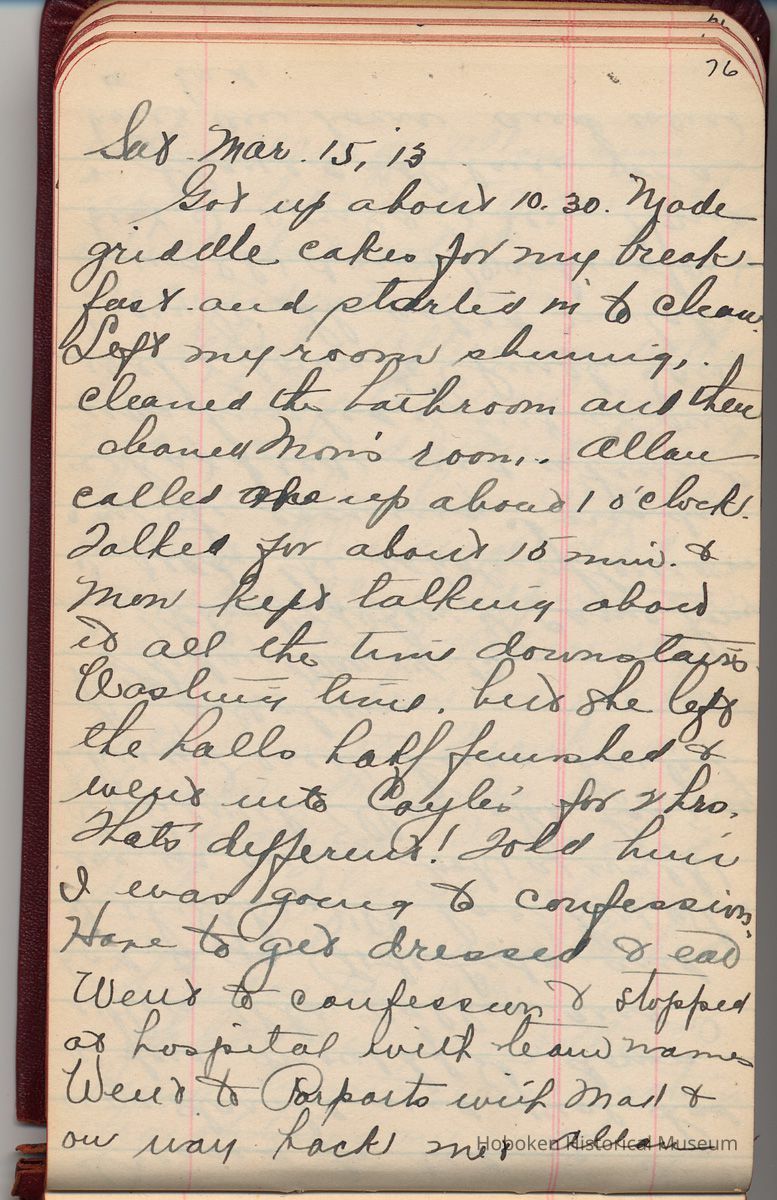 76
Sat. Mar. 15, '13
Got up about 10.30. Made
griddle cakes for my break-
fast and started in to clean.
Left my room shining,
cleaned the bathroom and then
cleaned Mom's room. Allan
called me up about 1 o'clock.
Talked for about 15 min. &
Mom kept talking about
it all the time downstairs
Washing time. but she left
the halls half finished &
went into Coyle's for 2 hrs.
That's different! Told him
I was going to confession.
Have to get dressed & eat
Went to confession & stopped
at hospital with team names
Went to Parparts with Mad &
on way back met Allan
Hoboken Historical Museum